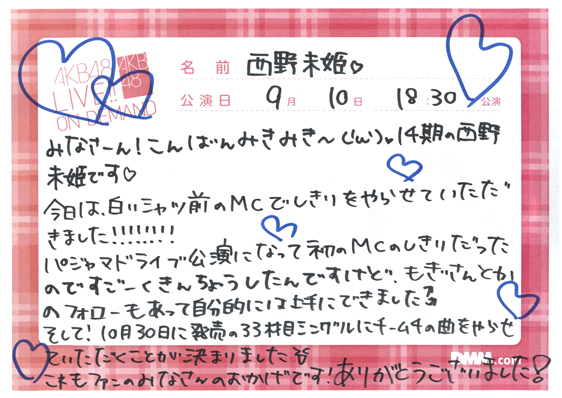 AKB48
LIVE!!
ON DEMAND
AKB
48
名前 西野未姫♡
公演日 9月 10日 18:30 公演
みなさーん!こんばんみきみき〜(・ω・)♡14期の西野
未姫です♡
今日は、白いシャツ前のMCでしきりをやらせていただ
きました!!!!!!!!
パジャマドライブ公演になって初のMCのしきりだった
のですごーくきんちょうしたんですけど、もぎさんとか
のフォローもあって自分的には上手にできました
そして!10月30日に発売の33枚目シングルにチーム4の曲をやらせ
ていただくことが決まりました
DMM.com
これもファンのみなさんのおかげです!ありがとうございました!